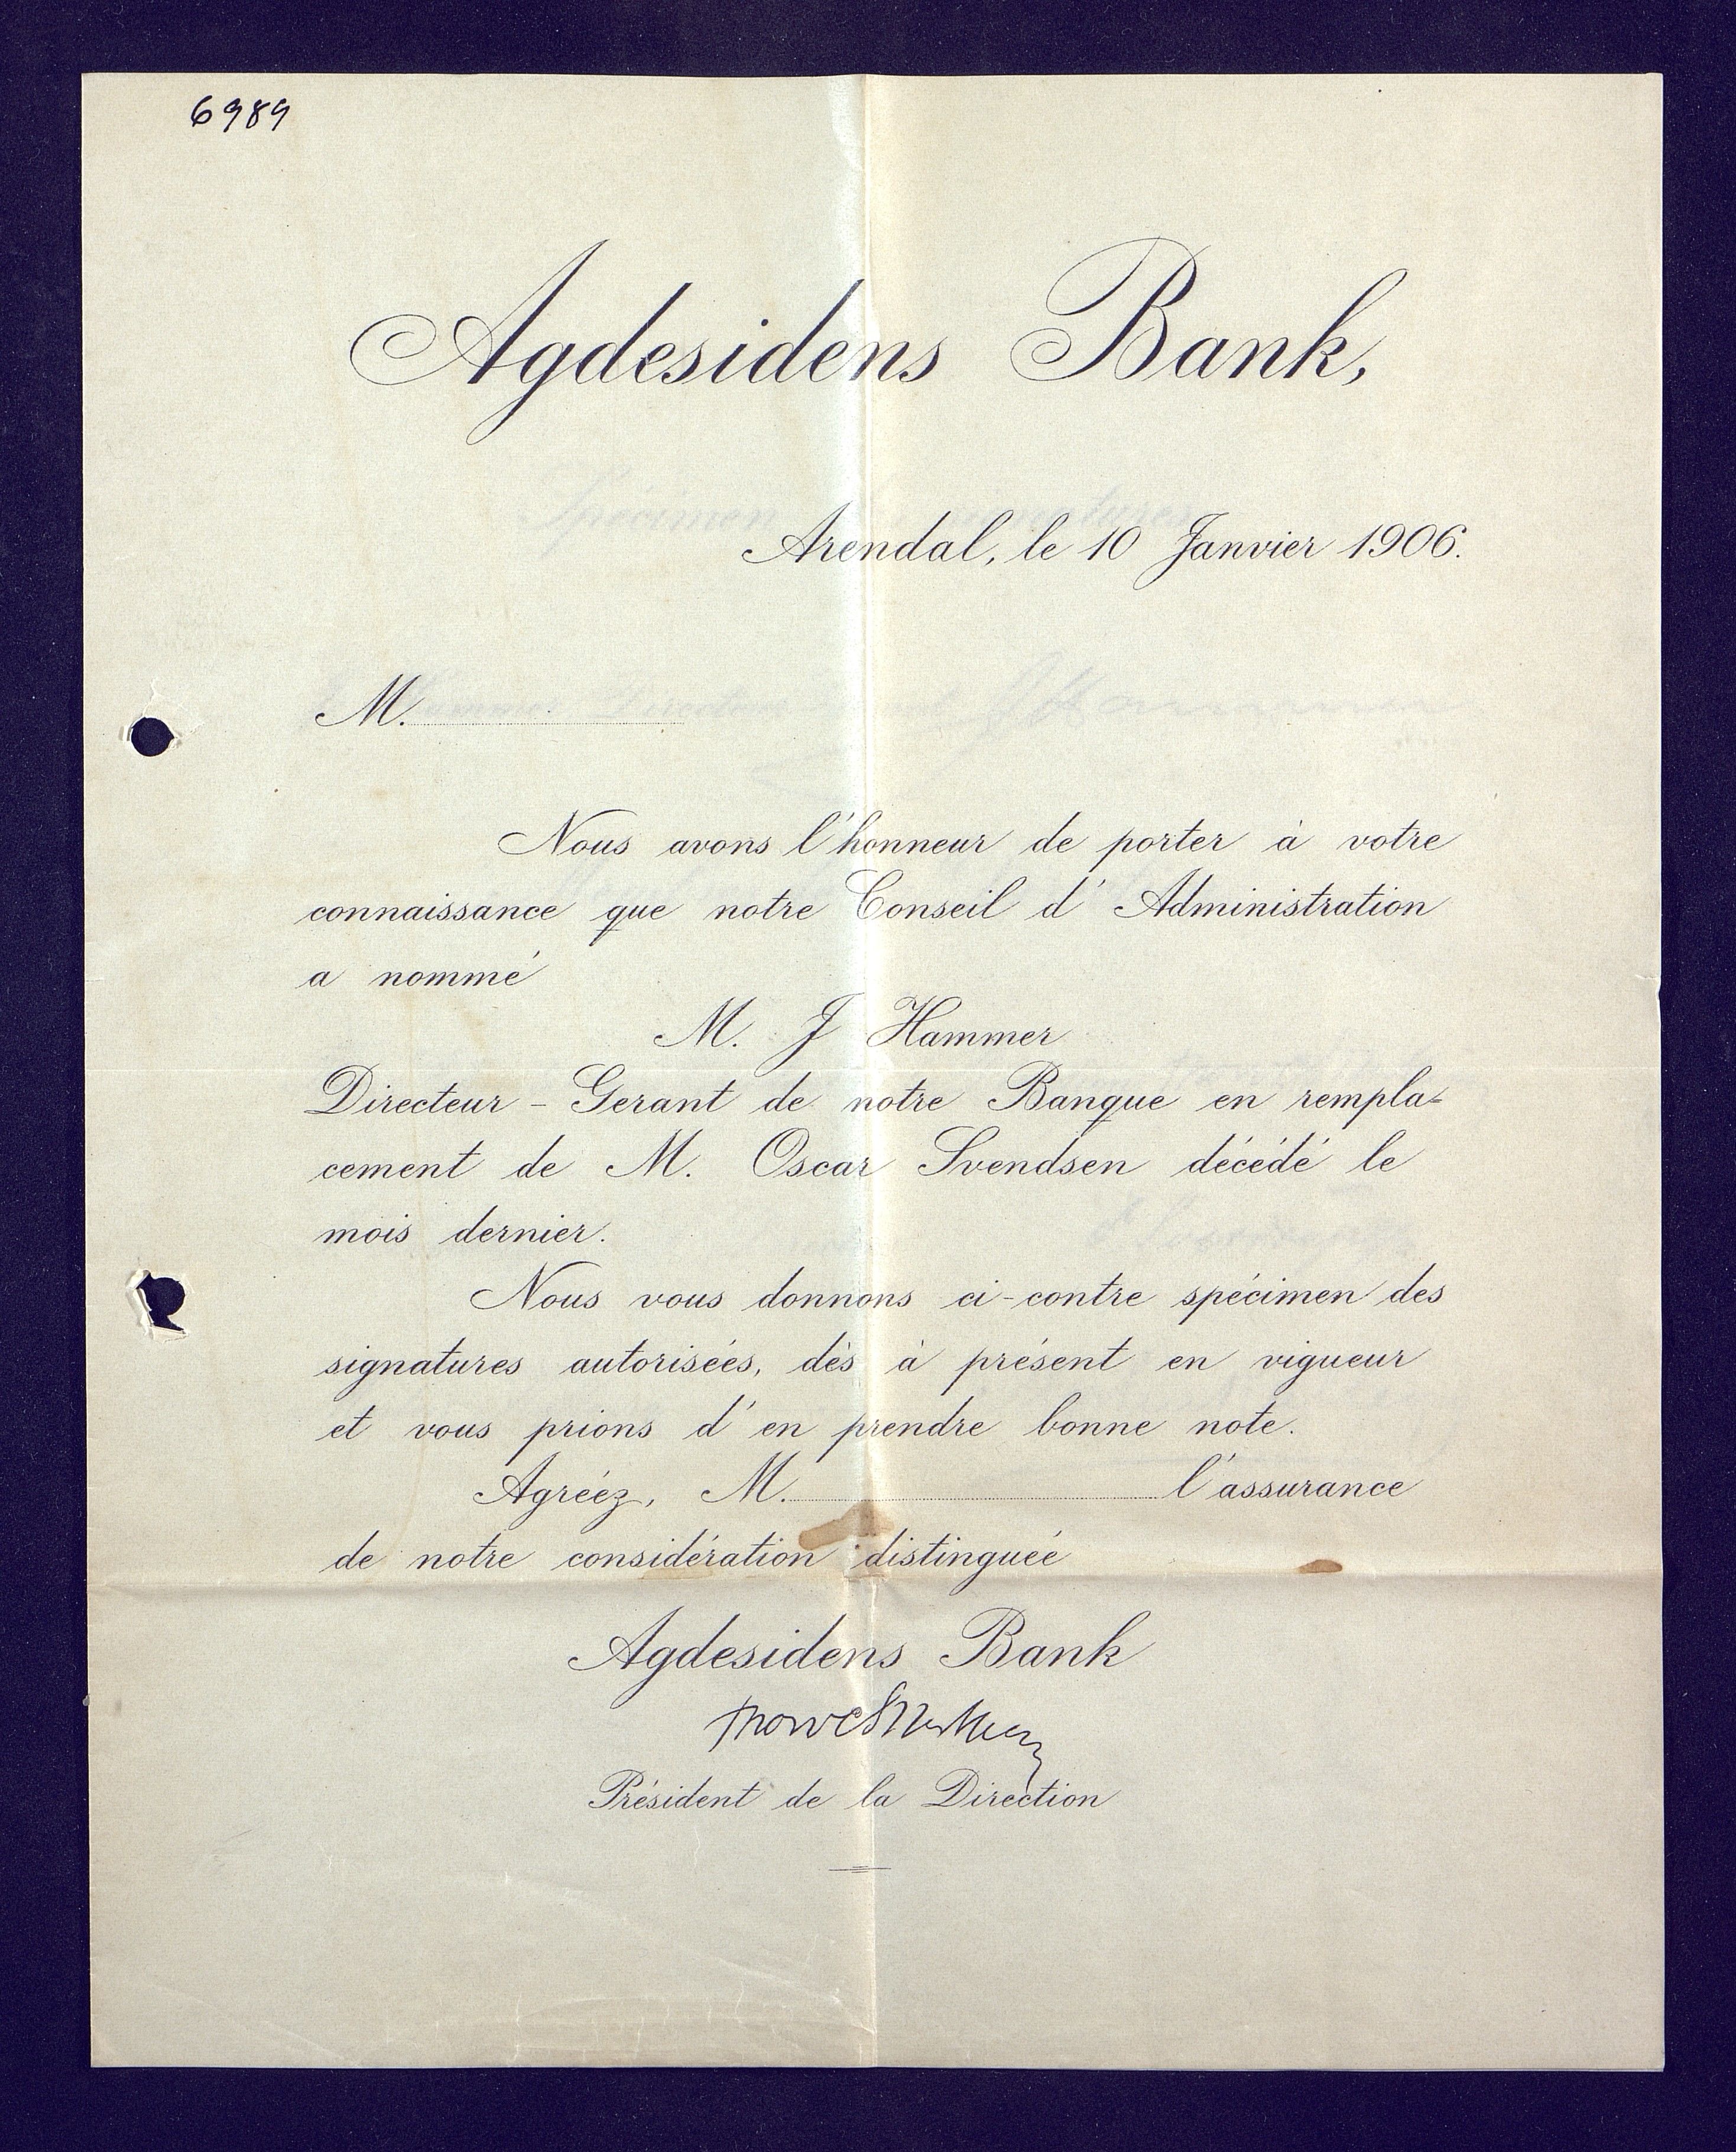 6989
Agdesidens Bank,
Arendal, le 10 Janvier 1906.
M.
Nous avons l'honneur de porter à votre
connaissance que notre Conseil d'Administration
a nommé
M. J Hammer
Directeur - Gerant de notre Banque en rempla-
cement de M. Oscar Svendsen décédé le
mois dernier.
Nous vous donnons ci-contre spécimen des
signatures autorisées, dès à présent en vigueur
et vous prions d'en prendre bonne note.
Agréez, M. l'assurance
de notre considération distinguée
Agdesidens Bank
Président de la Direction